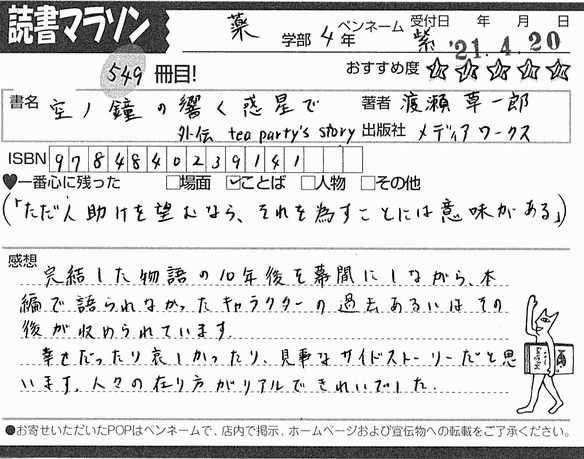 読書マラソン
薬 学部 4 年 ペンネーム 紫 受付日 年 月 日
'21.4.20
549 冊目! おすすめ度 ☆☆☆☆☆
書名 空ノ鐘の響く惑星で 著者 渡瀬草一郎
外伝 tea party's story 出版社 メディアワークス
ISBN 9784840239141
♥一番心に残った □場面 ☑ことば □人物 □その他
(「ただ人助けを望むなら、それを為すことには意味がある」)
感想
完結した物語の10年後を幕間にしながら、本
編で語られなかったキャラクターの過去あるいはその
後が収められています。
幸せだったり哀しかったり、見事なサイドストーリーだと思
います。人々の在り方がリアルできれいでした。
●お寄せいただいたPOPはペンネームで、店内で掲示、ホームページおよび宣伝物への転載をご了承ください。